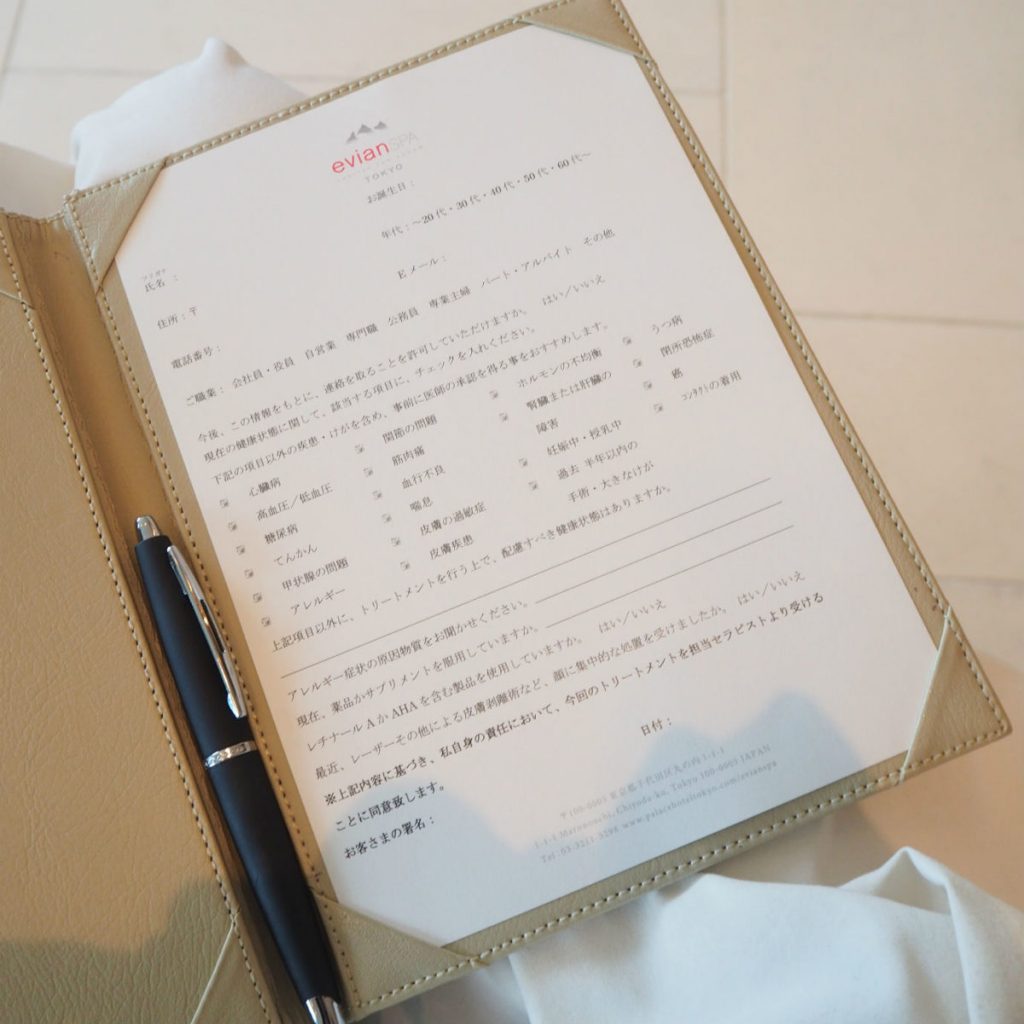 evian SPA
TOKYO
お誕生日：
年代：～20代・30代・40代・50代・60代～
フリガナ
氏名 ：
Eメール：
住所：〒
電話番号：
ご職業： 会社員・役員 自営業 専門職 公務員 専業主婦 パート・アルバイト その他
今後、この情報をもとに、連絡を取ることを許可していただけますか。 はい／いいえ
現在の健康状態に関して、該当する項目に、チェックを入れください。
下記の項目以外の疾患・けがを含め、事前に医師の承認を得る事をおすすめします。
心臓病
高血圧／低血圧
糖尿病
てんかん
甲状腺の問題
アレルギー
関節の問題
筋肉痛
血行不良
喘息
皮膚の過敏症
皮膚疾患
ホルモンの不均衡
腎臓または肝臓の
障害
妊娠中・授乳中
過去 半年以内の
手術・大きなけが
うつ病
閉所恐怖症
癌
コンタクトの着用
上記項目以外に、トリートメントを行う上で、配慮すべき健康状態はありますか。
アレルギー症状の原因物質をお聞かせください。
現在、薬品かサプリメントを服用していますか。
レチナールAかAHAを含む製品を使用していますか。 はい／いいえ
最近、レーザーその他による皮膚剥離術など、顔に集中的な処置を受けましたか。 はい／いいえ
※上記内容に基づき、私自身の責任において、今回のトリートメントを担当セラピストより受ける
ことに同意致します。
お客さまの署名：
日付：
〒100-0005 東京都千代田区丸の内 1-1-1
1-1-1 Marunouchi, Chiyoda-ku, Tokyo 100-0005 JAPAN
Tel: 03-3211-5298 www.palacehoteltokyo.com/evianspa